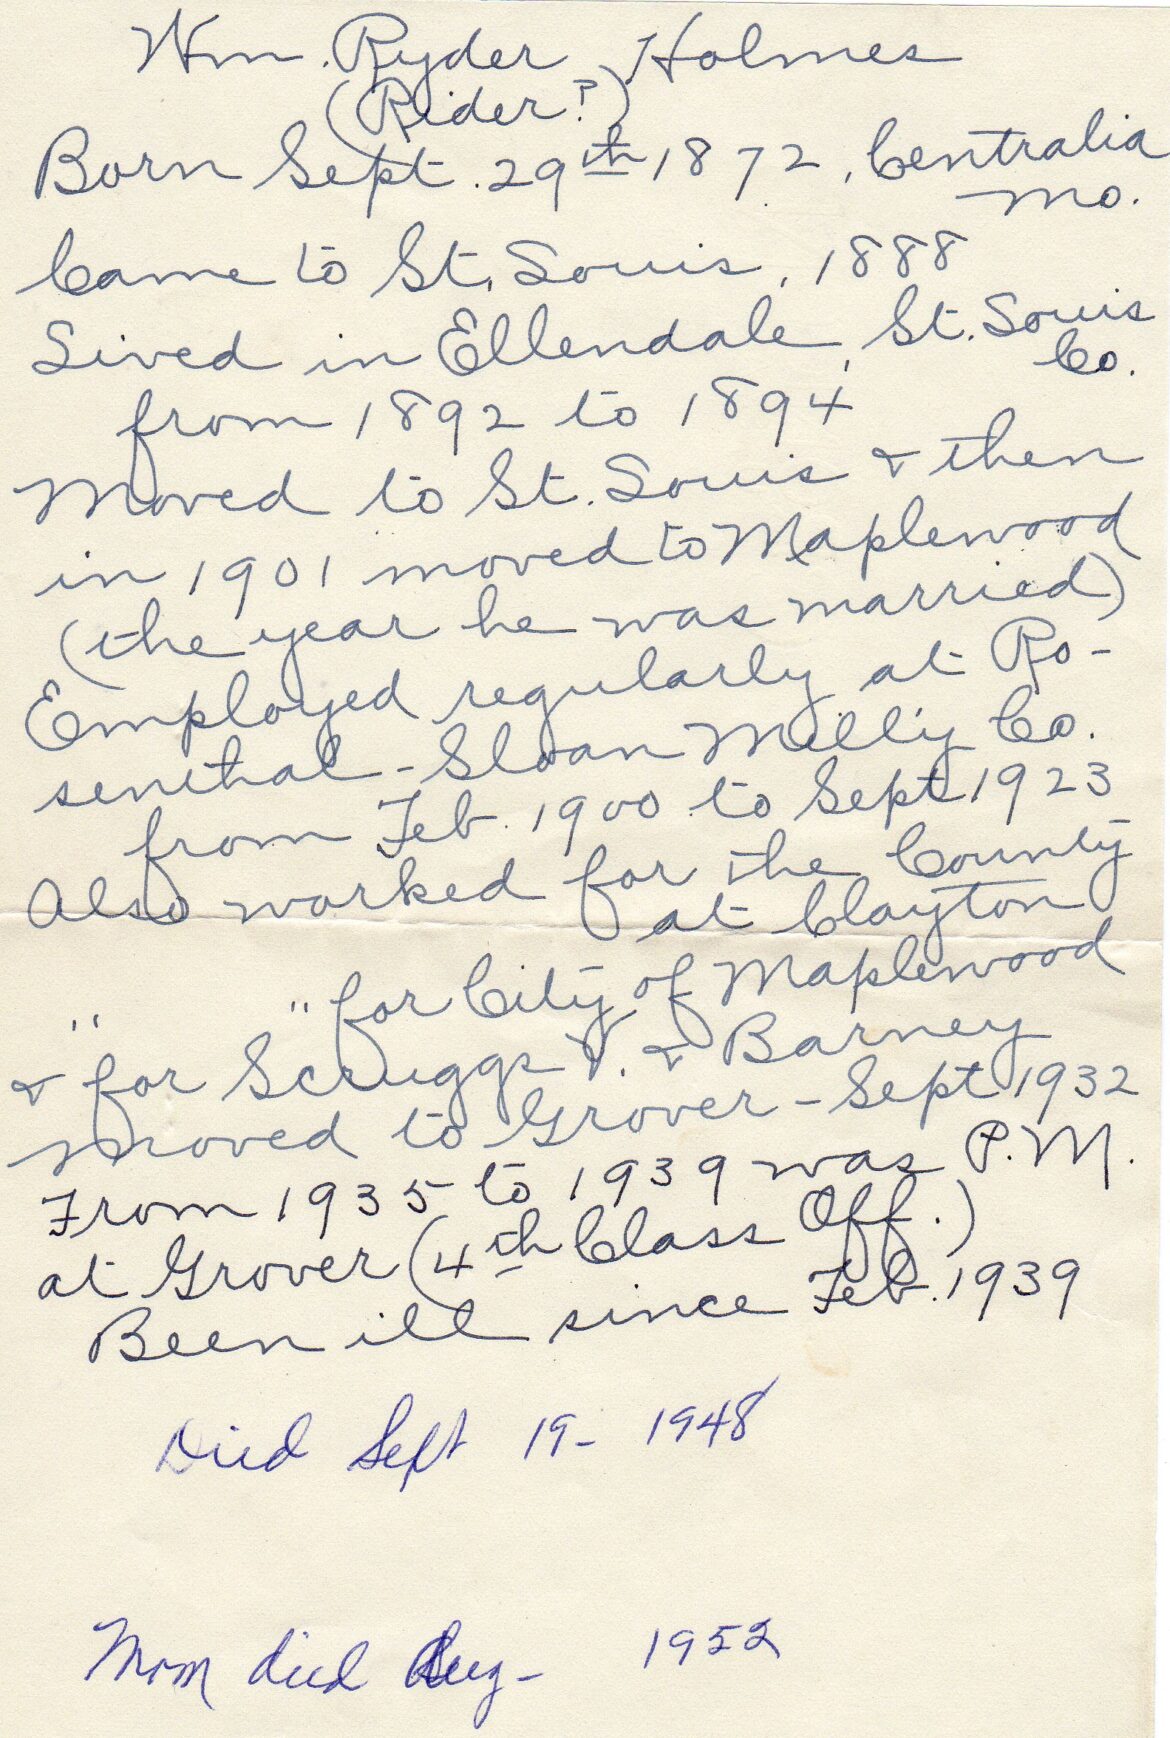 Wm. Ryder Holmes
(Rider?)
Born Sept. 29th 1872, Centralia
Mo.
Came to St. Louis, 1888
Lived in Ellendale, St. Louis
Co.
from 1892 to 1894
Moved to St. Louis & then
in 1901 moved to Maplewood
(the year he was married)
Employed regularly at Ro-
senthal-Sloan Milly Co.
from Feb. 1900 to Sept 1923
Also worked for the County
at Clayton
" " for City of Maplewood
& for Scruggs V. & Barney
Moved to Grover - Sept 1932
From 1935 to 1939 was P.M.
at Grover (4th Class Off.)
Been ill since Feb. 1939
Died Sept 19- 1948
Mom died Aug- 1952